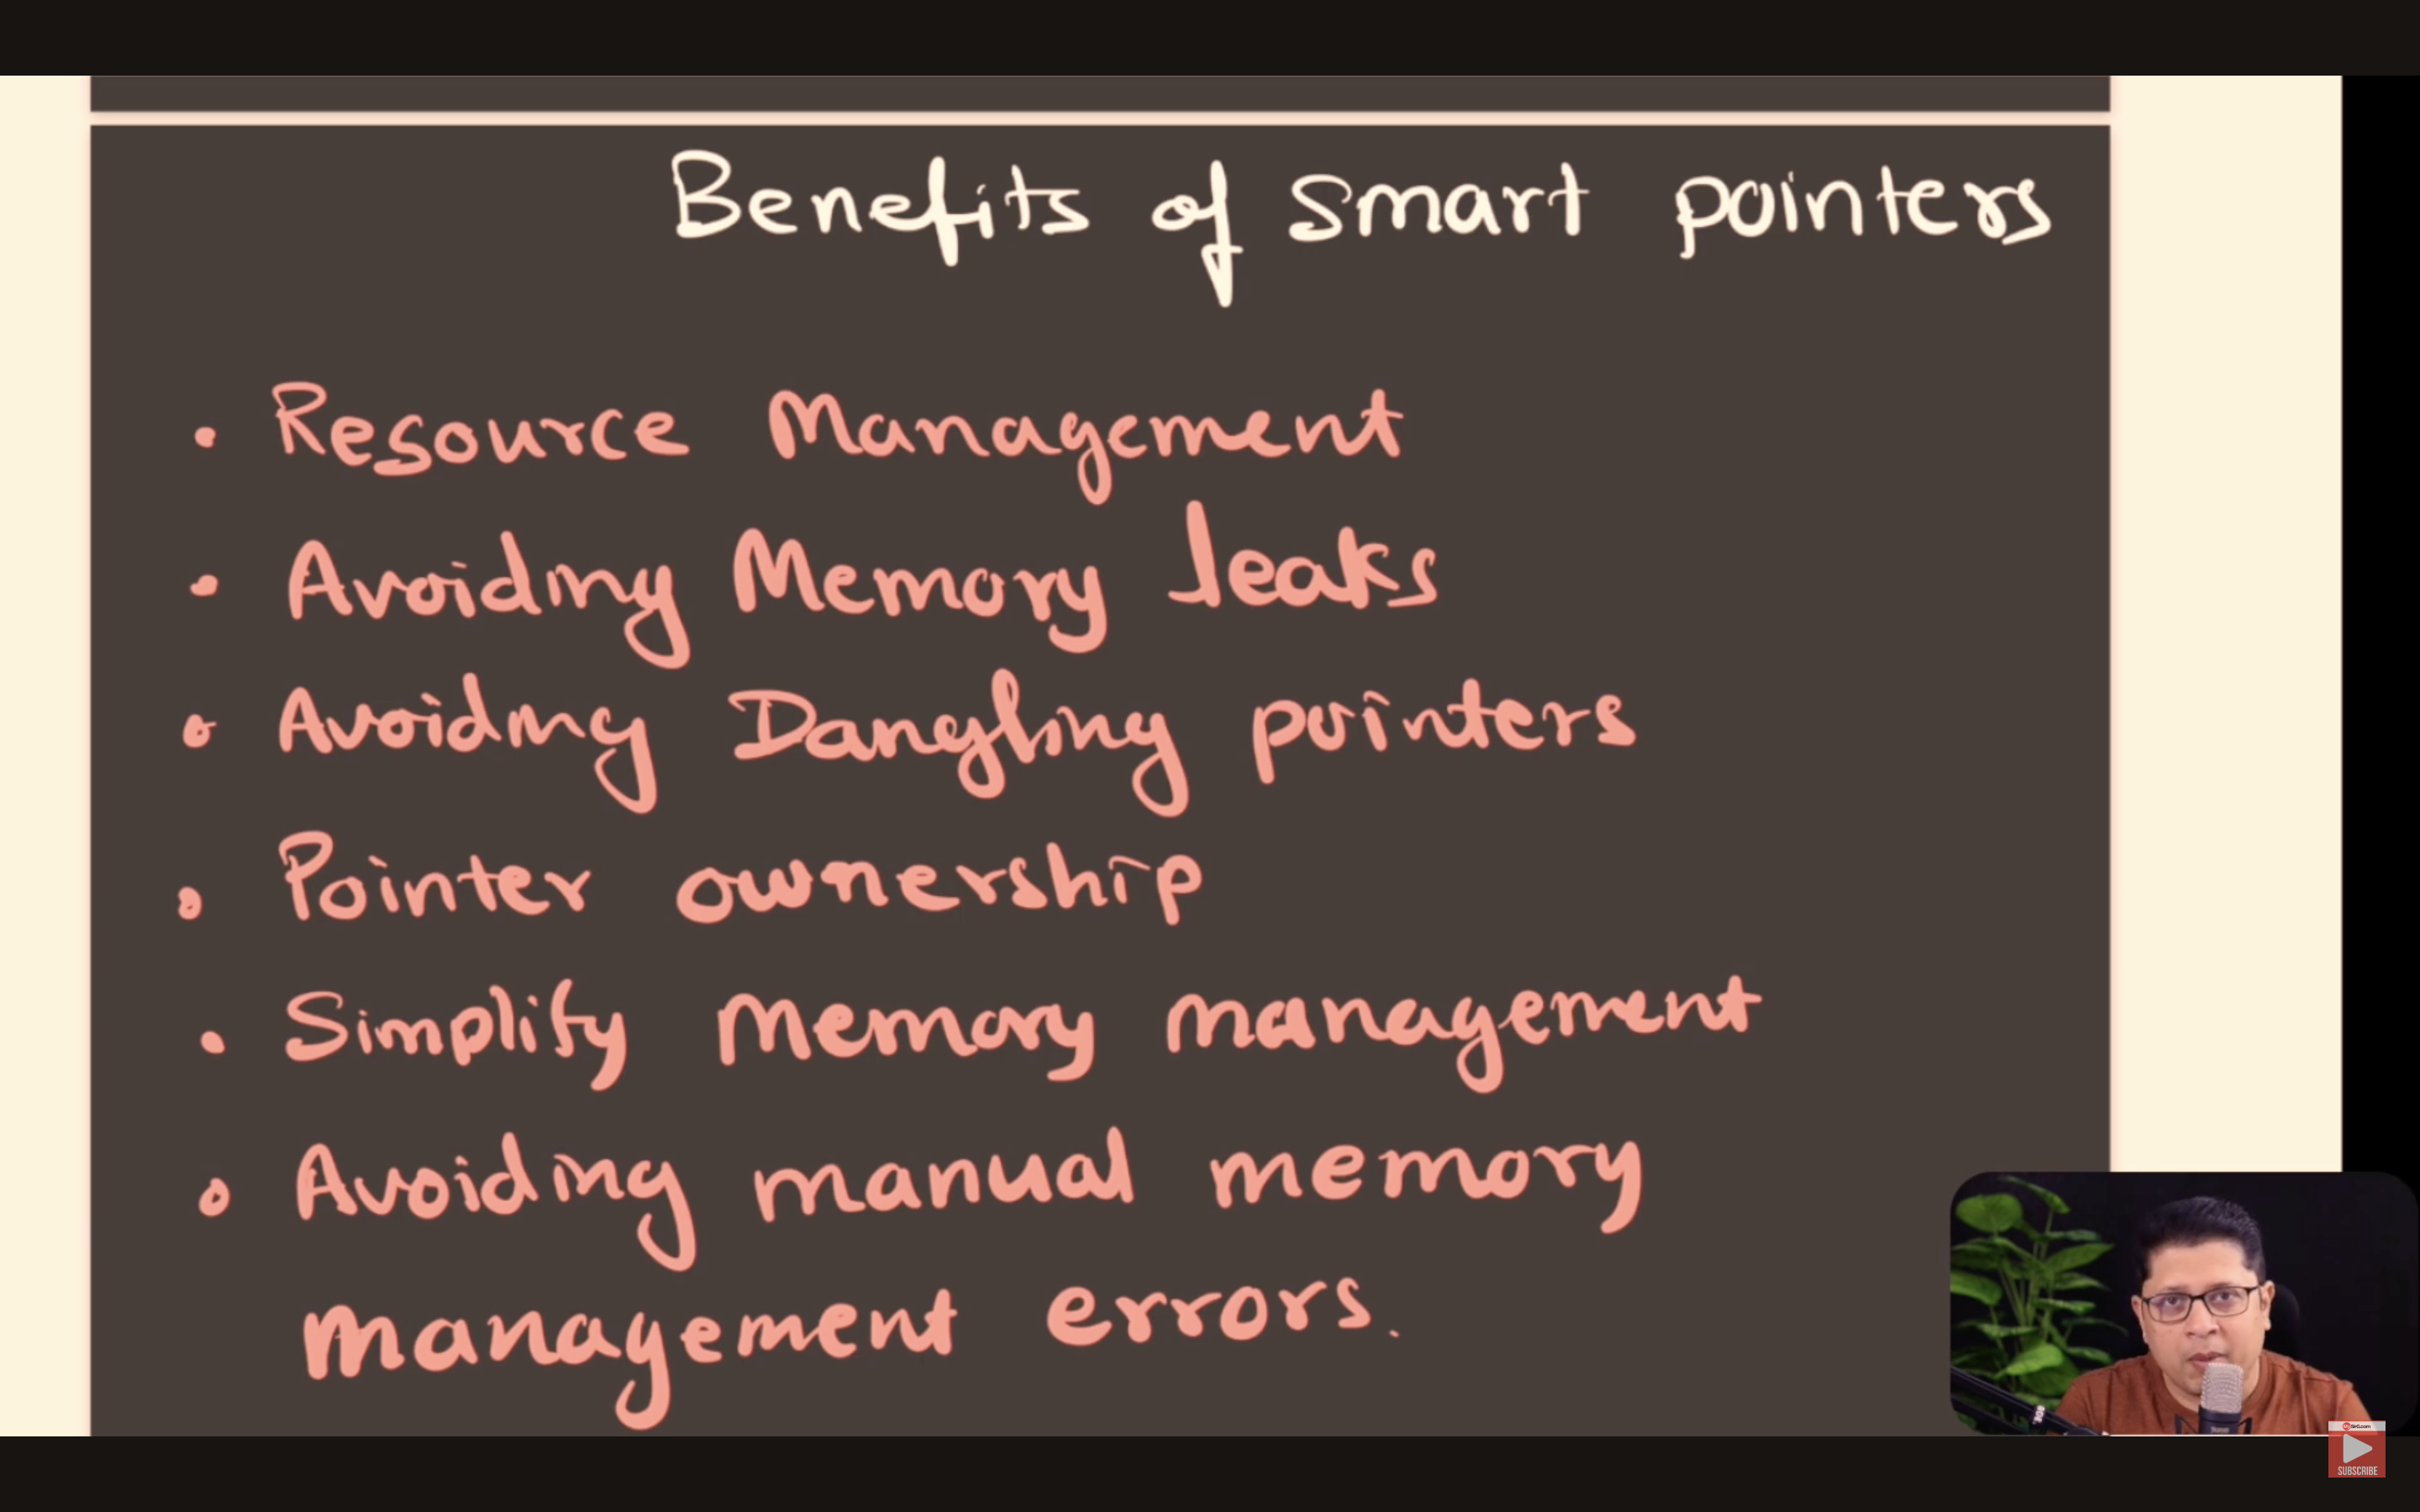 Benefits of smart pointers
• Resource Management
• Avoiding Memory leaks
• Avoiding Dangling pointers
• Pointer ownership
• Simplify Memory management
• Avoiding manual memory
management errors.
SUBSCRIBE